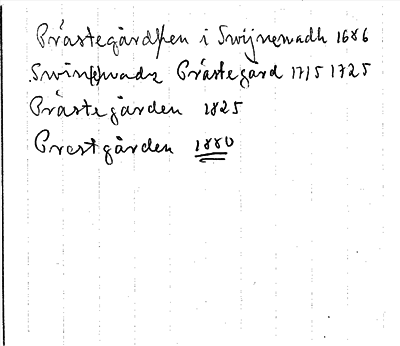 Prästegårdhen i Swijnewadh 1686
Swin(e)wadz Prästegård 1715 1725
Prästegården 1825
Prestgården 1880